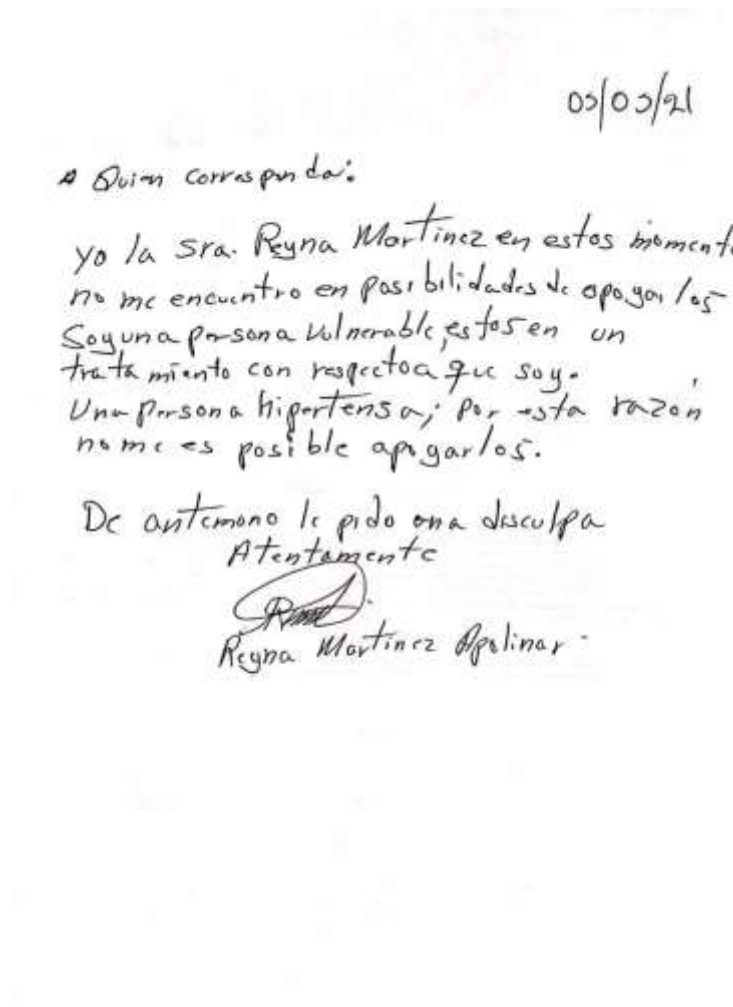 05/05/21
A Quien corresponda:
yo la Sra. Reyna Martinez en estos momento
no me encuentro en posibilidades de apoyar los
Soy una persona vulnerable, estos en un
tratamiento con respecto a que soy.
Una persona hipertensa; por esta razón
no me es posible apoyarlos.
De antemono le pido una disculpa
Atentamente
Reyna Martinez Apolinar.